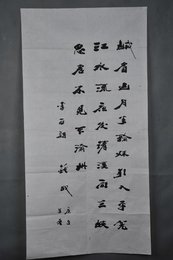 眉山月半輪秋影入平羌
江水流夜發清溪向三峽
思君不見下渝州
李白詩